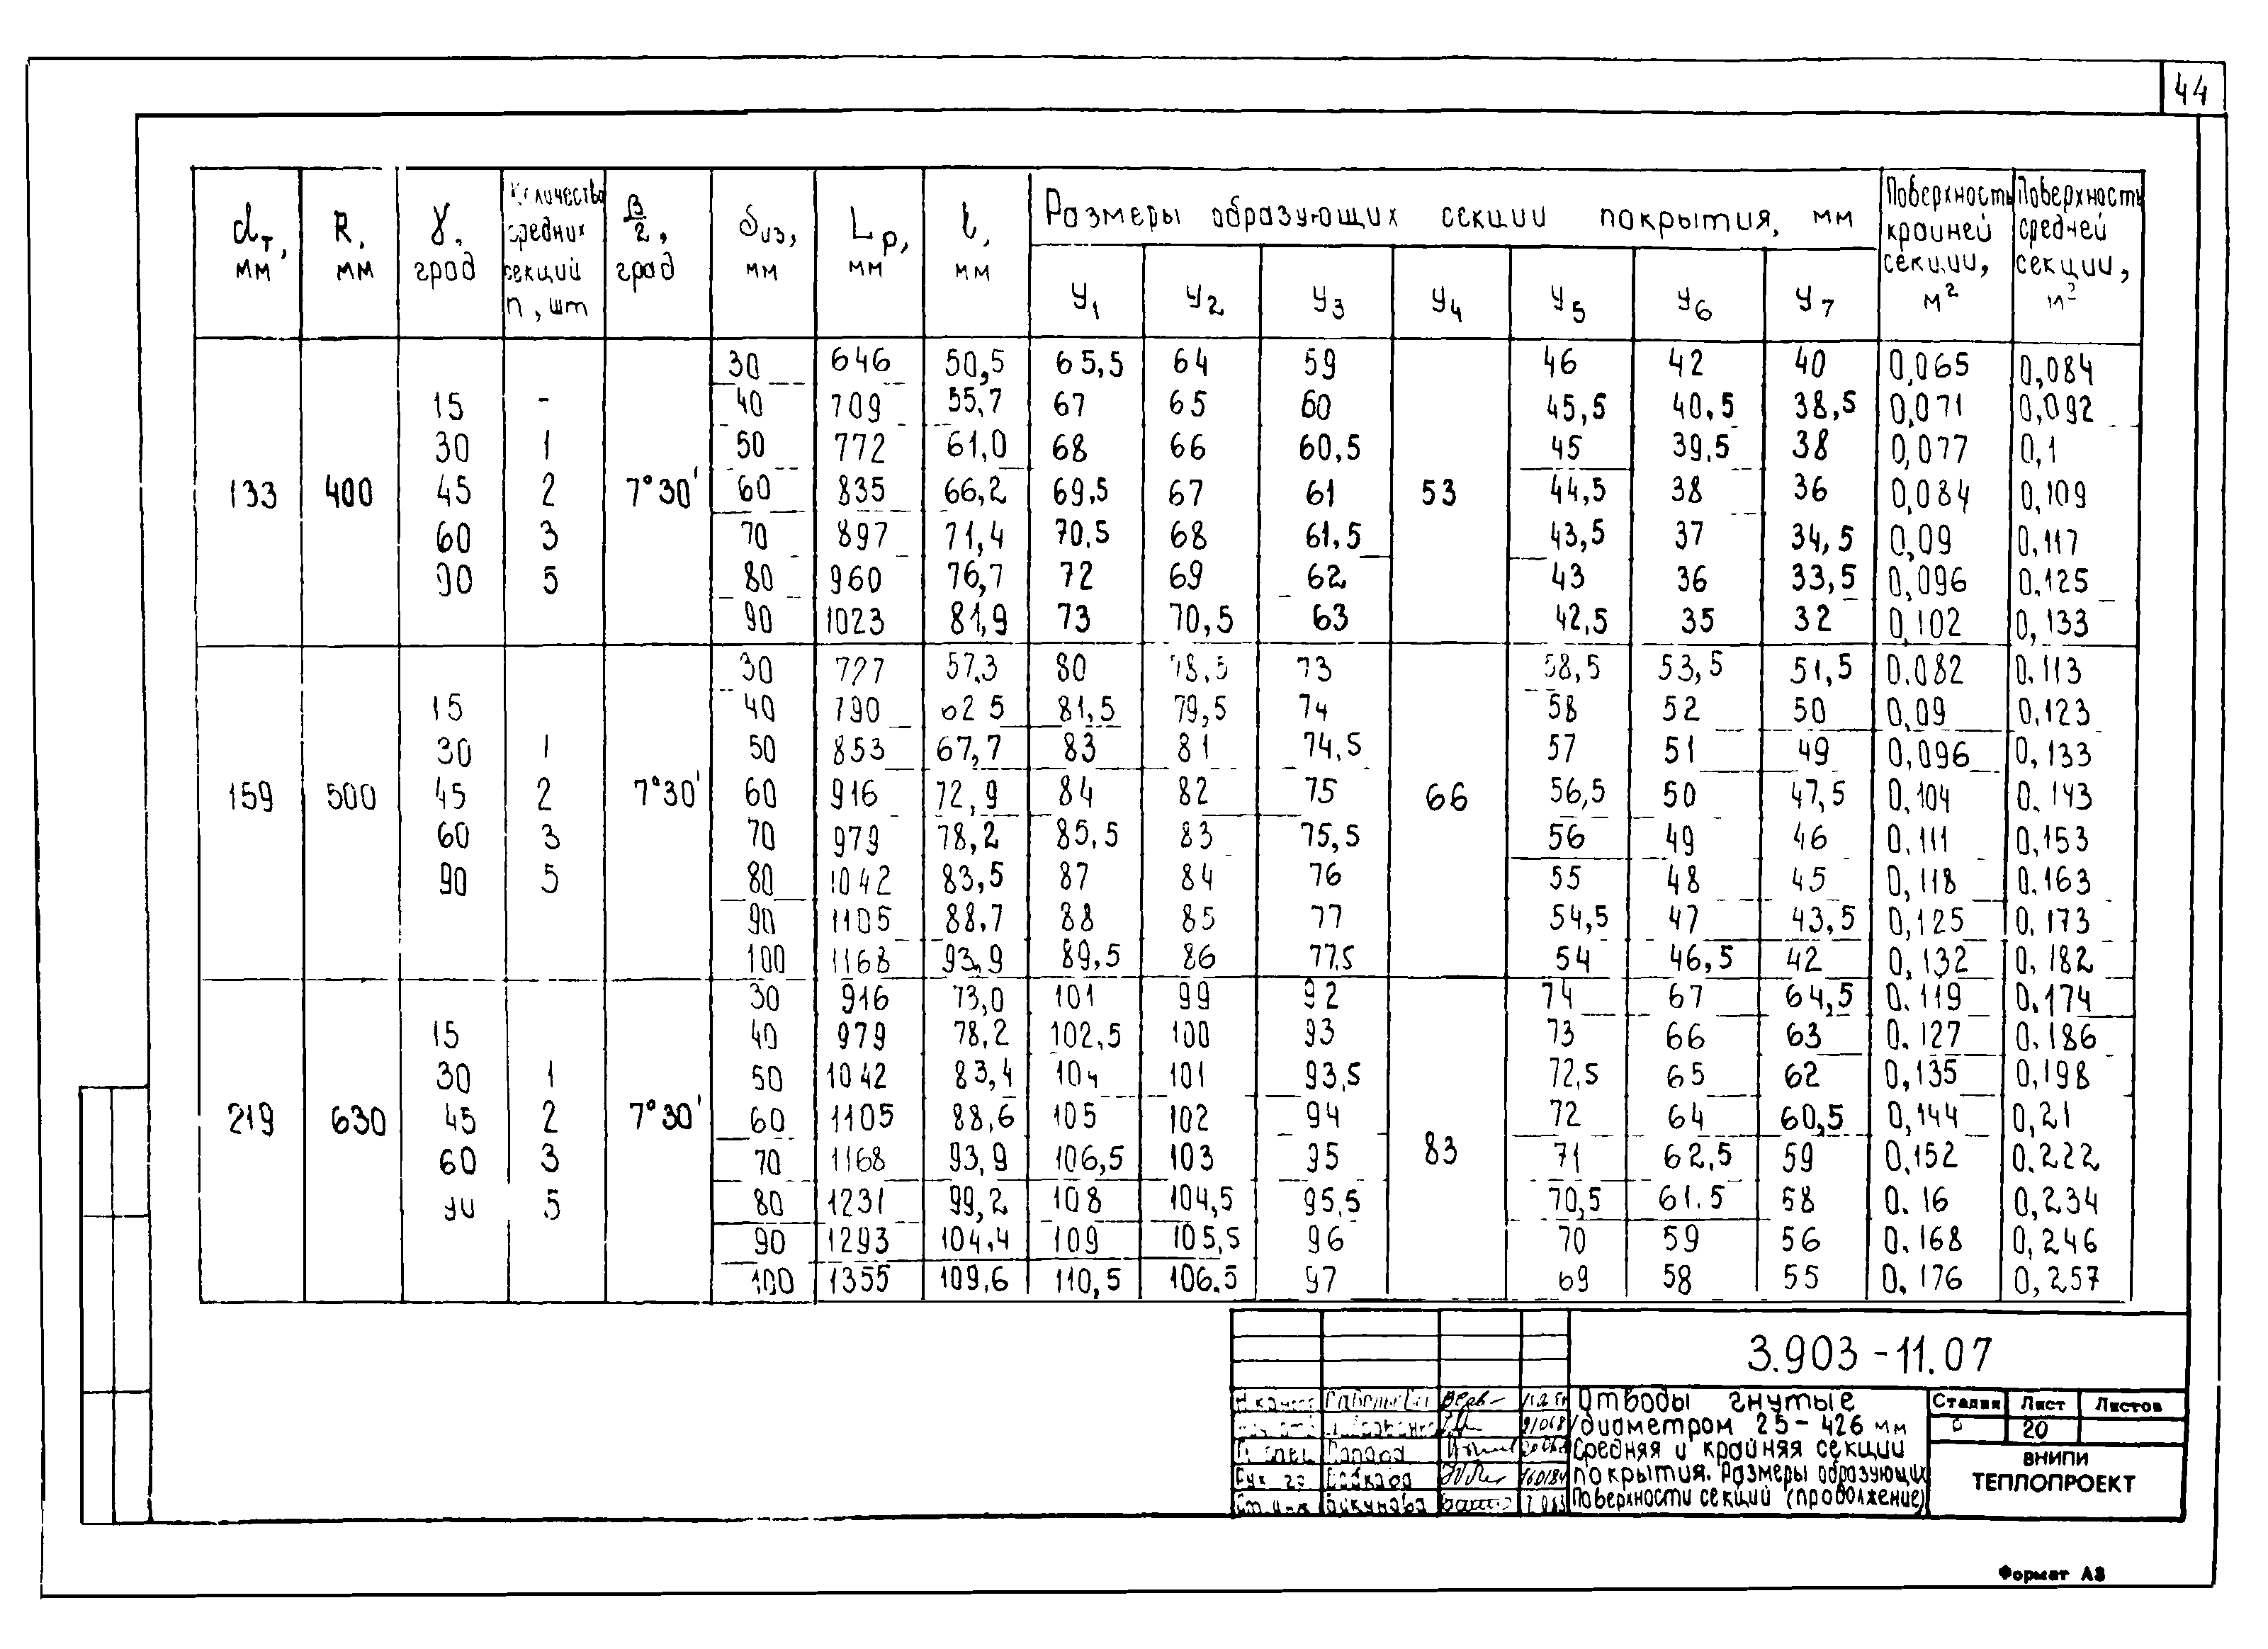 44
dт, мм R, мм γ, град Количество средних секций n, шт β/2, град δиз, мм Lр, мм l, мм Размеры образующих секции покрытия, мм Поверхность крайней секции, м² Поверхность средней секции, м²
У1 У2 У3 У4 У5 У6 У7
30 646 50,5 65,5 64 59 46 42 40 0,065 0,084
15 - 40 709 55,7 67 65 60 45,5 40,5 38,5 0,071 0,092
30 1 50 772 61,0 68 66 60,5 45 39,5 38 0,077 0,1
133 400 45 2 7°30' 60 835 66,2 69,5 67 61 53 44,5 38 36 0,084 0,109
60 3 70 897 71,4 70,5 68 61,5 43,5 37 34,5 0,09 0,117
90 5 80 960 76,7 72 69 62 43 36 33,5 0,096 0,125
90 1023 81,9 73 70,5 63 42,5 35 32 0,102 0,133
30 727 57,3 80 78,5 73 58,5 53,5 51,5 0.082 0.113
15 40 790 62 5 81,5 79,5 74 58 52 50 0,09 0,123
30 1 50 853 67,7 83 81 74,5 57 51 49 0,096 0,133
159 500 45 2 7°30' 60 916 72,9 84 82 75 66 56,5 50 47,5 0.104 0.143
60 3 70 979 78,2 85,5 83 75,5 56 49 46 0.111 0,153
90 5 80 1042 83,5 87 84 76 55 48 45 0,118 0.163
90 1105 88,7 88 85 77 54,5 47 43,5 0,125 0.173
100 1168 93,9 89,5 86 77,5 54 46,5 42 0,132 0,182
30 916 73,0 101 99 92 74 67 64,5 0.119 0.174
15 40 979 78,2 102,5 100 93 73 66 63 0.127 0.186
30 1 50 1042 83,4 104 101 93,5 72,5 65 62 0,135 0,198
219 630 45 2 7°30' 60 1105 88,6 105 102 94 83 72 64 60,5 0,144 0,21
60 3 70 1168 93,9 106,5 103 95 71 62,5 59 0,152 0.222
90 5 80 1231 99,2 108 104,5 95,5 70,5 61.5 58 0.16 0,234
90 1293 104,4 109 105,5 96 70 59 56 0.168 0,246
100 1355 109,6 110,5 106.5 97 69 58 55 0.176 0,257
3.903-11.07
Отводы гнутые
диаметром 25-426 мм
Средняя и крайняя секции
покрытия. Размеры образующих
Поверхности секций (продолжение)
Стадия Лист Листов
Р 20
ВНИПИ
ТЕПЛОПРОЕКТ
Формат А3